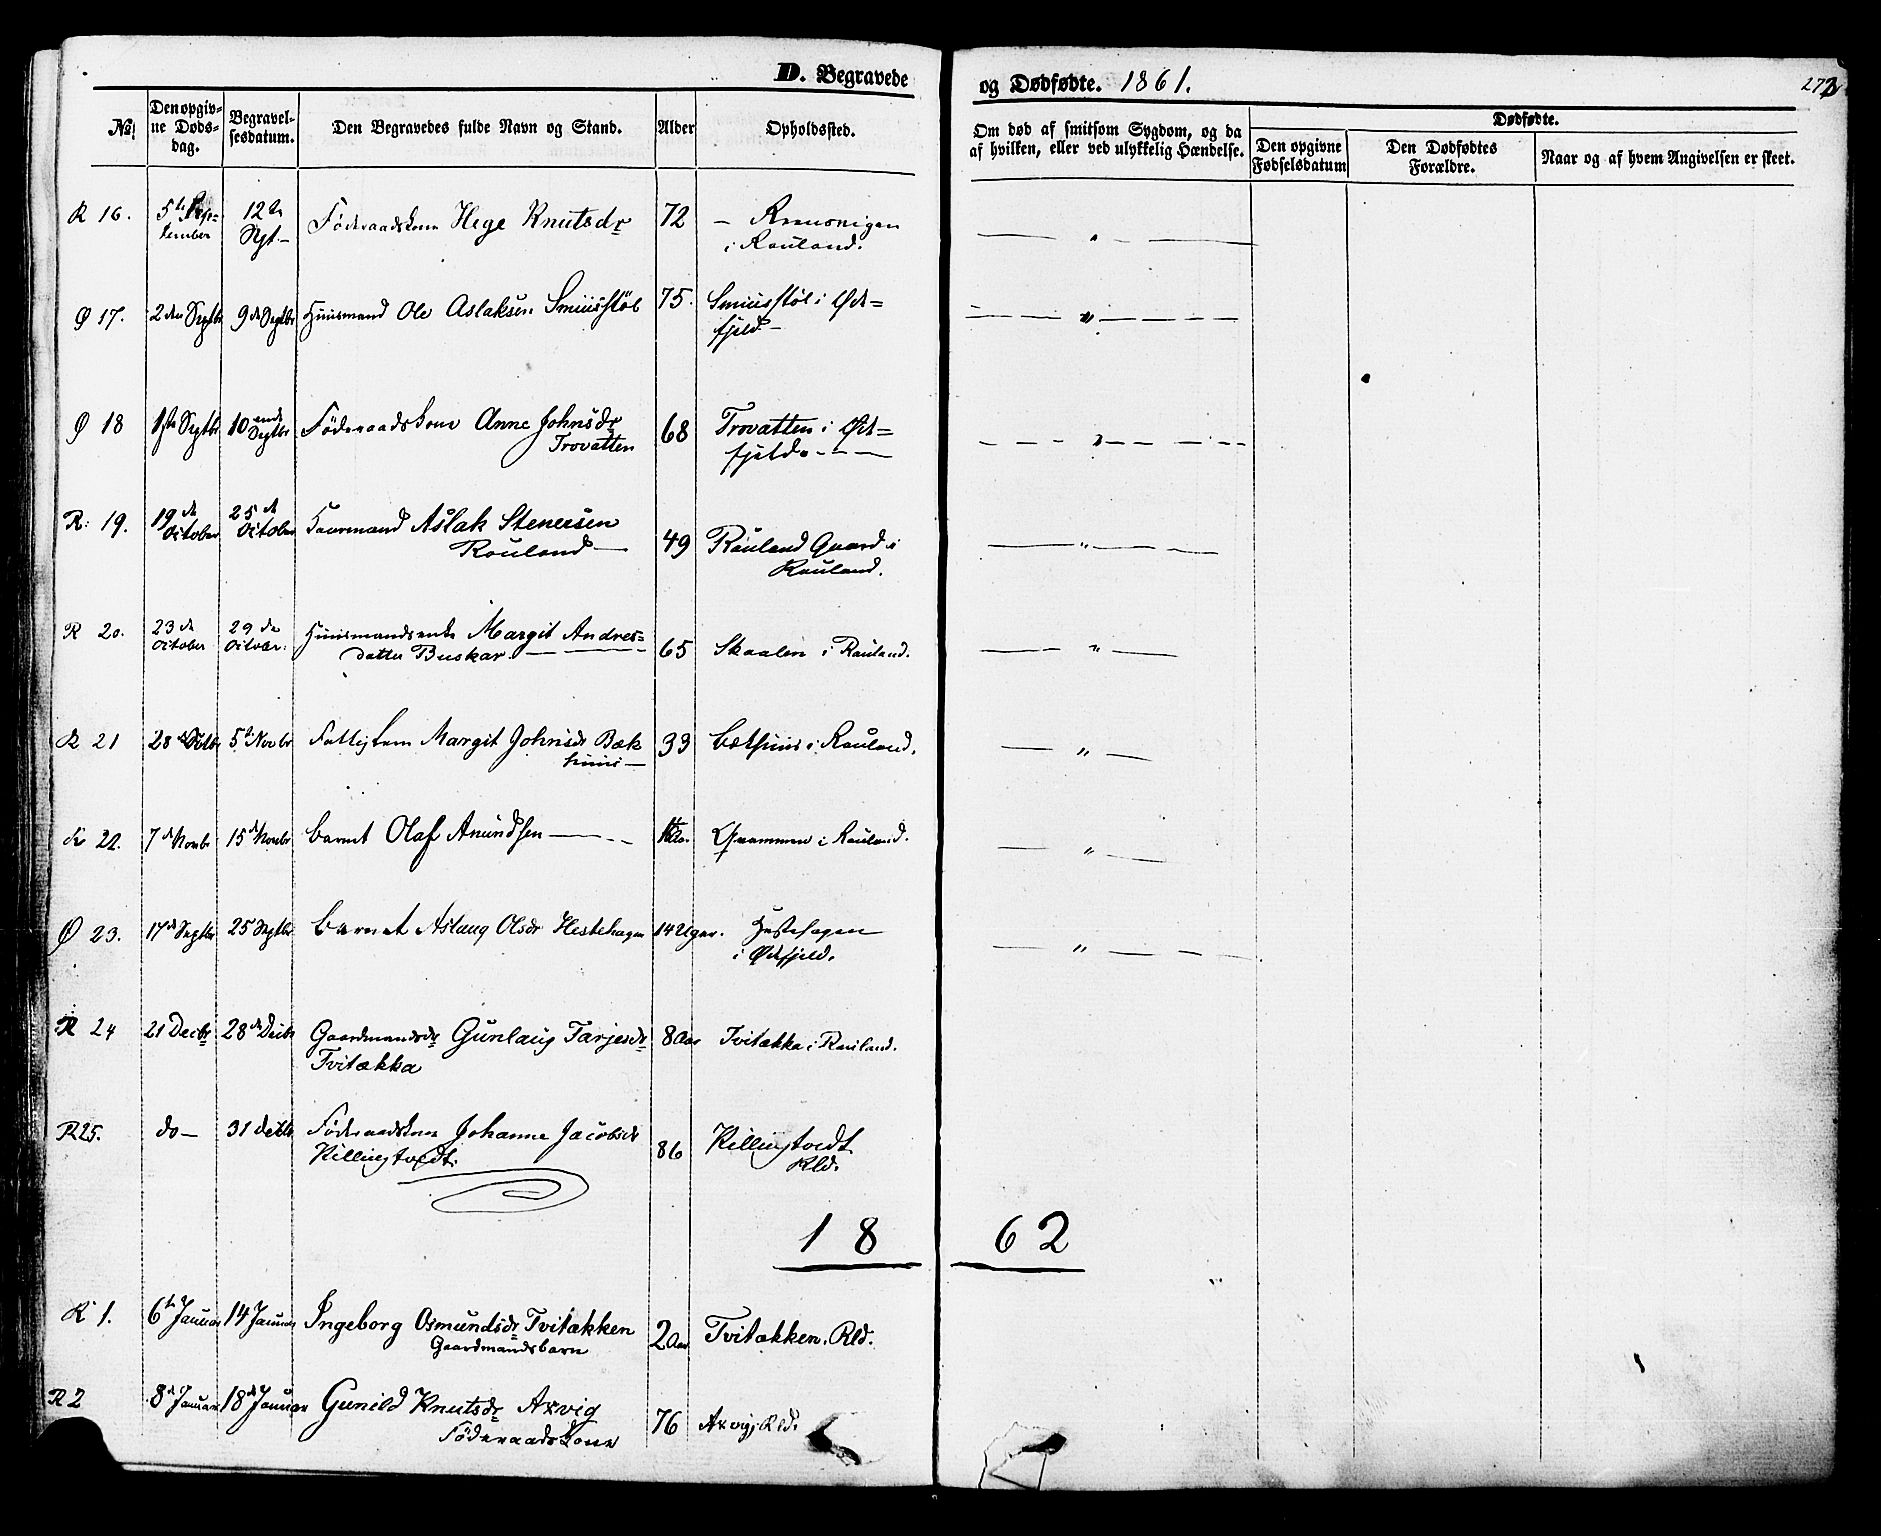 D. Begravede og Dødfødte. 1861.
No. Den opgivne Dødsdag. Begravelsesdatum. Den Begravedes fulde Navn og Stand. Alder Opholdssted. Om død af smitsom Sygdom, og da af hvilken, eller ved ulykkelig Hændelse. Dødfødte. Den opgivne Fødselsdatum Den Dødfødtes Forældre. Naar og af hvem Angivelsen er skeet.
R 16. 5te September 12te Sept. Föderaadskone Hege Knutsdr 72
i Rauland.
Ø 17. 2den Septbr 9de Septbr Huusmand Ole Aslaksen Smiusstöl 75. Smiusstöl i Øi=
fjeld
Ø 18 1ste Septbr 10ende Septbr Föderaadskone Anne Johnsdr
Trovatten 68 Trovatten i Øi=
fjeld.
R. 19. 19de October 25de October Gaarmand Aslak Stenersen
Rouland 49 Rauland Gaard i
Rauland.
R 20. 23de October 29de October Huusmandsenke Margit Andres=
datter Buskar. 65 Skaalen i Rauland.
R 21 28de Octbr 5te Novbr Fattiglem Margit Johnsdr Bæk
huus 33 Bækhuus i Rauland.
R 22. 7de Novbr 15de Novbr Barnet Olaf Anundsen i Rauland.
Ø 23. 17de Septbr 25 Septbr Barnet Aslaug Olsdr Hestehagen 14 Uger. Hestehagen
i Øifjeld.
R 24 21 Decbr 28de Decbr Gaardmandsdr Gunlaug Tarjesdr
Tvitækka 8 Aar Tvitækka i Rauland.
R 25. do 31 Decbr Föderaadskone Johanne Jacobsdr
Killingtvedt. 86 Killingtvedt
Rld.
1862
R 1. 6te Januar 14 Januar Ingeborg Osmundsdr Tvitækken
Gaardmandsbarn 2 Aar Tvitækken. Rld.
R 2 8de Januar 18de Januar Gunild Knutsdr Axvig
Föderaadskone 76 Axvig, Rld.